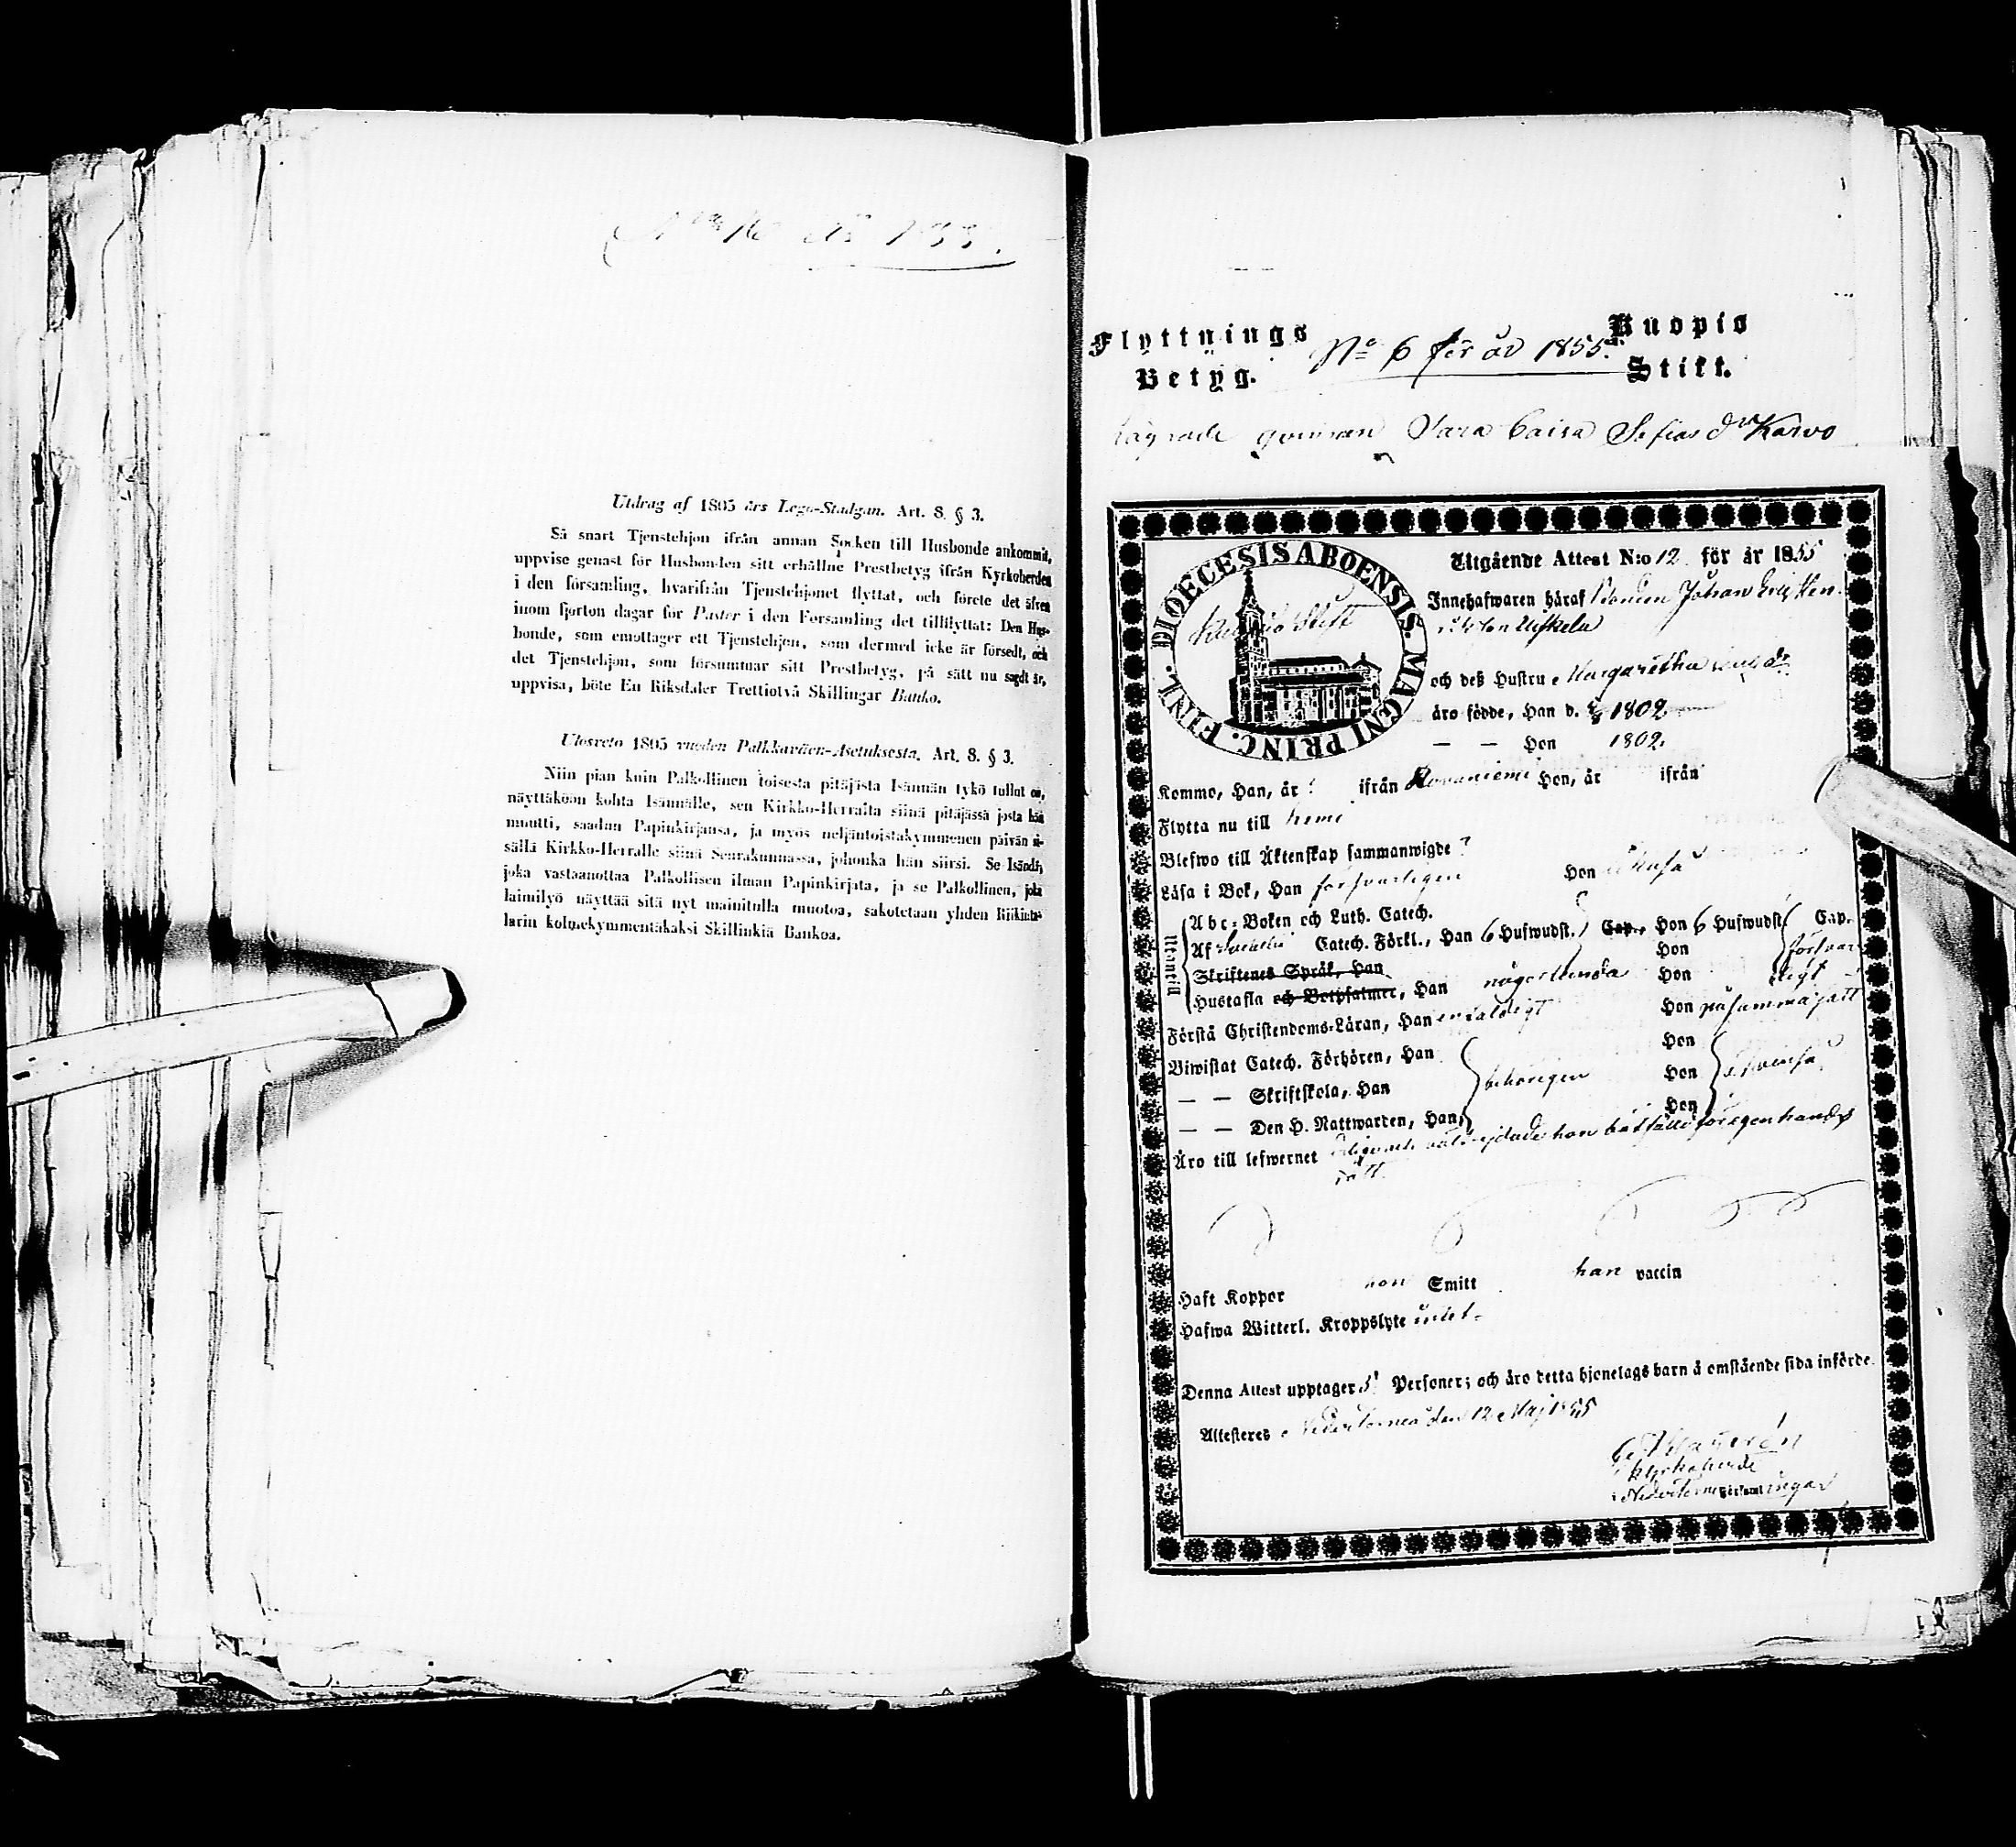 Utdrag af 1805 års Lego-Stadgan. Art. 8. § 3.
Så snart Tjenstehjon ifrån annan Socken till Husbonde ankommit,
uppvise genast för Husbonden sitt erhållne Prestbetyg ifrån Kyrkoherden
i den församling, hvarifrån Tjenstehjonet flyttat, och förete det äfven
inom fjorton dagar för Pastor i den Församling det tillflyttat: Den Hus-
bonde, som emottager ett Tjenstehjon, som dermed icke är försedt, och
det Tjenstehjon, som försummar sitt Prestbetyg, på sätt nu sagdt är,
uppvisa, böte En Riksdaler Trettiotvå Skillingar Banko.
Ulosveto 1805 vueden Palkkaväen-Asetuksesta. Art. 8. § 3.
Niin pian kuin Palkollinen toisesta pitäjästa Isännän tykö tullut on,
näyttäköän kohta Isännälle, sen Kirkko-Herralta siinä pitäjässä josta hän
muutti, saadun Papinkirjansa, ja myös neljäntoistakymmenen päivän si-
sällä Kirkko-Herralle siinä Seurakunnassa, johonka hän siirsi. Se Isändä,
joka vastaanottaa Palkollisen ilman Papinkirjata, ja se Palkollinen, joka
laimilyö näyttää sitä nyt mainitulla muotoa, sakotetaan yhden Riikinta-
larin kolmekymmentäkaksi Skillinkiä Bankoa.
Flyttnings Betyg. No 6 för år 1855. Kuopio Stift.
qvinnan Sara Caisa Karvo
DIOECESIS ABOENSIS. MAGNI PRINC. FINL.
Kuopio Stift
Utgående Attest N:o 12 för år 1855
Innehafwaren häraf Bonden Johan Eric
och deß Hustru Margaretha
äro födde, Han d. 1802
— — Hon 1802.
Komme, Han, år ? ifrån Rovaniemi Hon, år ifrån
Flytta nu till Kemi
Blefwo till Äktenskap sammanwigde ?
Läsa i Bok, Han försvarligen Hon
Utantill
Abc-Boken och Luth. Catech.
Af Catech. Förkl., Han 6 Hufwudst. Cap., Hon 6 Hufwudst. Cap.
Skriftenes Språk, Han Hon
Hustafla och Botpsalmer, Han någorlunda Hon
Förstå Christendoms-Läran, Han Hon på samma sätt
Biwistat Catech. Förhören, Han Hon
— — Skriftskola, Han behörigen Hon
— — Den H. Nattwarden, Han Hon
Äro till lefwernet
Haft Koppor hon Smitt han vaccin
Hafwa Witterl. Kroppslyte intet.
Denna Attest upptager 5 Personer; och äro detta hjonelags barn å omstående sida införde.
Attesteres Nedertorneå den 12 Maj 1855
Kyrkoherde